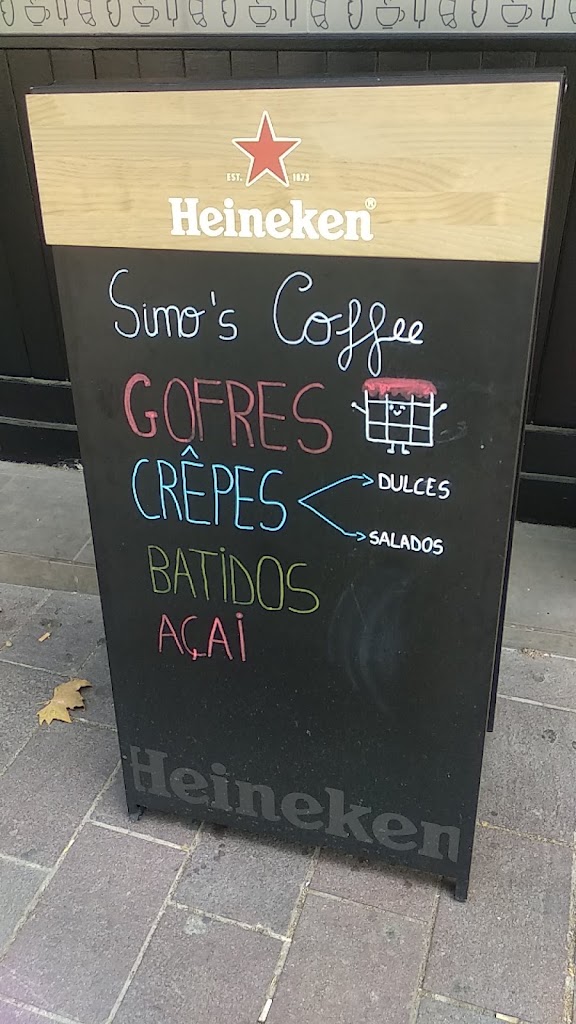 EST. 1873
Heineken®
Simo's Coffee
GOFRES
CRÊPES
DULCES
SALADOS
BATIDOS
AÇAI
Heineken